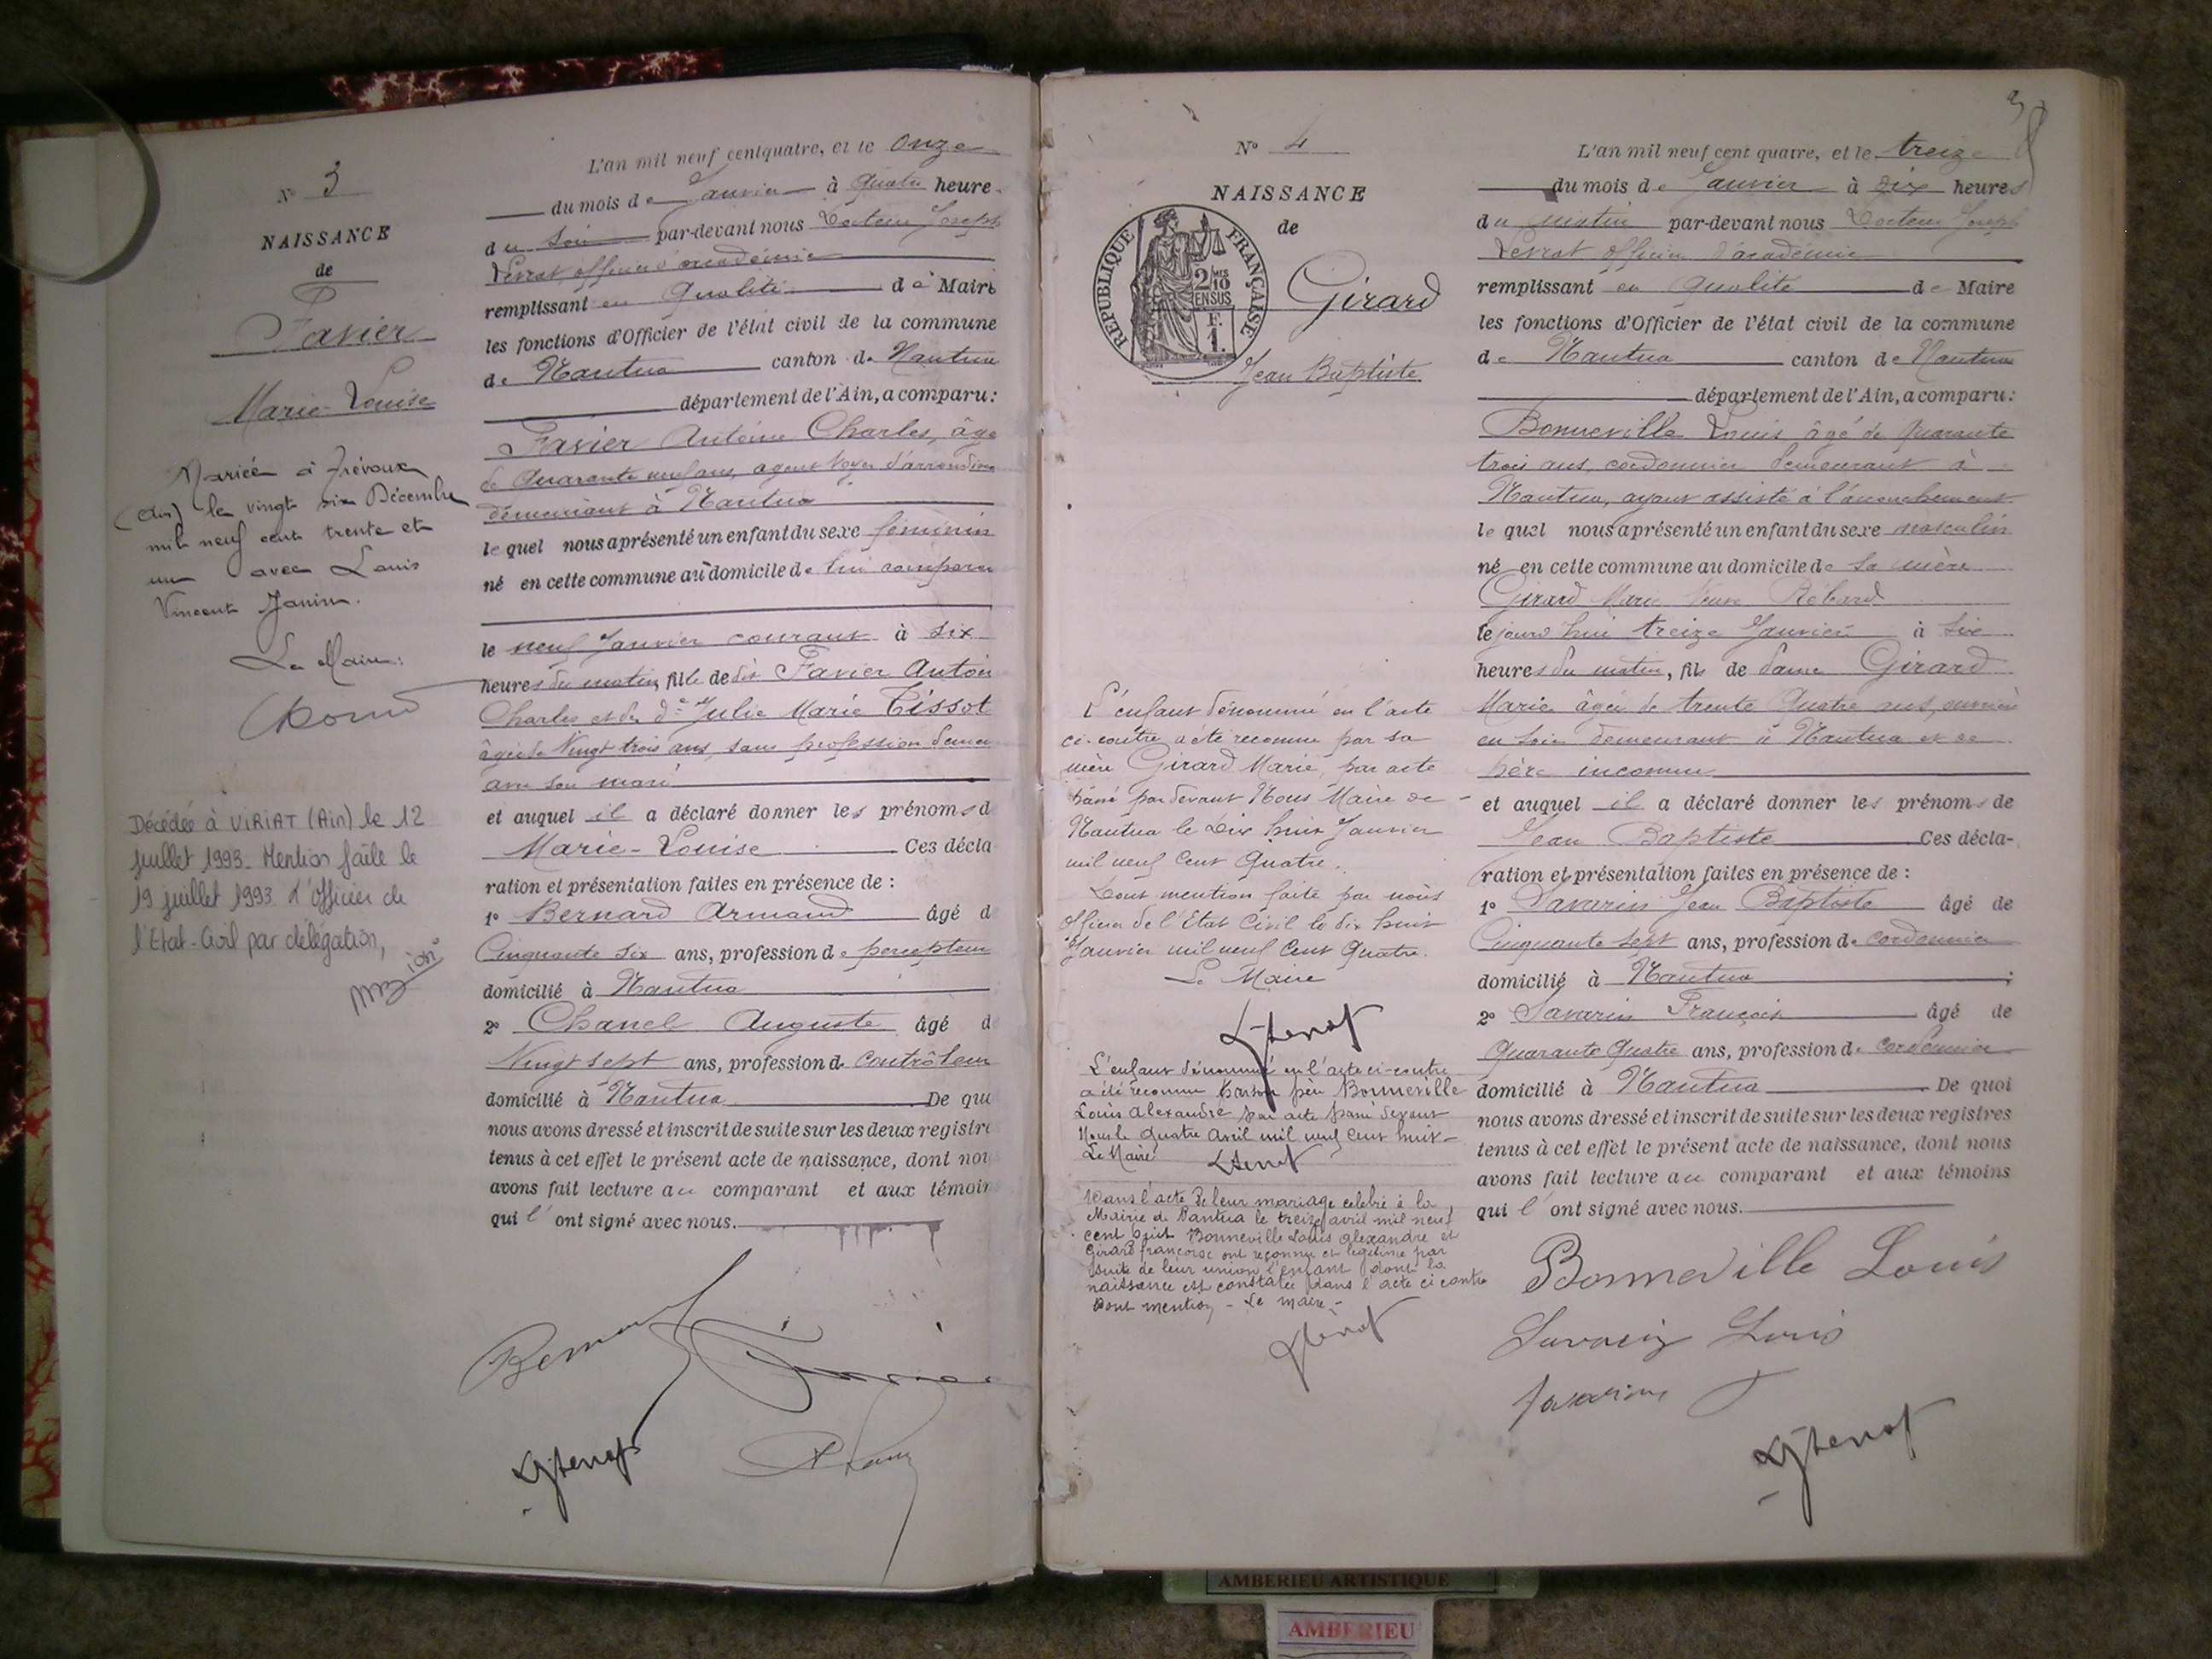 N° 3
NAISSANCE
de
Favier
Marie-Louise
Mariée à Trévoux
(Ain) le vingt six Décembre
mil neuf cent trente et
un avec Louis
Vincent Janin.
Le Maire:
Décédée à VIRIAT (Ain) le 12
juillet 1993. Mention faite le
19 juillet 1993. L'officier de
l'Etat-Civil par délégation,
L'an mil neuf cent quatre, et le onze
du mois de Janvier à quatre heure
du soir par-devant nous Docteur Joseph
officier d'académie
remplissant en qualité de Maire
les fonctions d'Officier de l'état civil de la commune
de Nantua canton de Nantua
département de l'Ain, a comparu:
Favier Antoine Charles, âgé
de quarante neuf ans, agent voyer d'arrondisse
demeurant à Nantua
lequel nous a présenté un enfant du sexe féminin
né en cette commune au domicile de lui comparu
le neuf Janvier courant à six
heures du matin, fille de dit Favier Antoin
Charles et de De Julie Marie Tissot
âgée de vingt trois ans, sans profession demeu
avec son mari
et auquel il a déclaré donner les prénoms d
Marie-Louise Ces décla
ration et présentation faites en présence de :
1° Bernard Armand âgé d
Cinquante six ans, profession de percepteur
domicilié à Nantua
2° Chanel Auguste âgé d
Vingt sept ans, profession de Contrôleur
domicilié à Nantua De quo
nous avons dressé et inscrit de suite sur les deux registre
tenus à cet effet le présent acte de naissance, dont nou
avons fait lecture au comparant et aux témoin
qui l'ont signé avec nous.
N° 4
NAISSANCE
de
REPUBLIQUE FRANÇAISE
2/10 EN SUS
F. 1.
Girard
Jean Baptiste
L'enfant dénommé en l'acte
ci-contre a été reconnu par sa
mère Girard Marie, par acte
passé par devant Nous Maire de
Nantua le Dix huit Janvier
mil neuf Cent Quatre.
Dont mention faite par nous
officier de l'Etat Civil le dix huit
Janvier mil neuf Cent Quatre.
Le Maire
L'enfant dénommé en l'acte ci-contre
a été reconnu par son père Bonneville
Louis Alexandre par acte passé devant
Nous le quatre Avril mil neuf Cent huit
Le Maire
Dans l'acte de leur mariage célébré à la
Mairie de Nantua le treize avril mil neuf
cent huit Bonneville Louis Alexandre et
Girard françoise ont reconnu et légitimé par
suite de leur union l'enfant dont la
naissance est constatée dans l'acte ci contre
Dont mention - Le maire -
L'an mil neuf cent quatre, et le treize
du mois de Janvier à dix heures
du matin par-devant nous Docteur Joseph
officier d'académie
remplissant en qualité de Maire
les fonctions d'Officier de l'état civil de la commune
de Nantua canton de Nantua
département de l'Ain, a comparu:
Bonneville Louis âgé de quarante
trois ans, cordonnier demeurant à
Nantua, ayant assisté à l'accouchement
lequel nous a présenté un enfant du sexe masculin
né en cette commune au domicile de sa mère
Girard Marie veuve
lejourd'hui treize Janvier à six
heures du matin, fils de dame Girard
Marie âgée de trente quatre ans, ouvrière
en soie demeurant à Nantua et de
père inconnu
et auquel il a déclaré donner les prénoms de
Jean Baptiste Ces décla-
ration et présentation faites en présence de :
1° Savarin Jean Baptiste âgé de
Cinquante sept ans, profession de cordonnier
domicilié à Nantua ;
2° Savarin François âgé de
quarante quatre ans, profession de cordonnier
domicilié à Nantua De quoi
nous avons dressé et inscrit de suite sur les deux registres
tenus à cet effet le présent acte de naissance, dont nous
avons fait lecture au comparant et aux témoins
qui l'ont signé avec nous.
Bonneville Louis
AMBERIEU ARTISTIQUE
AMBERIEU